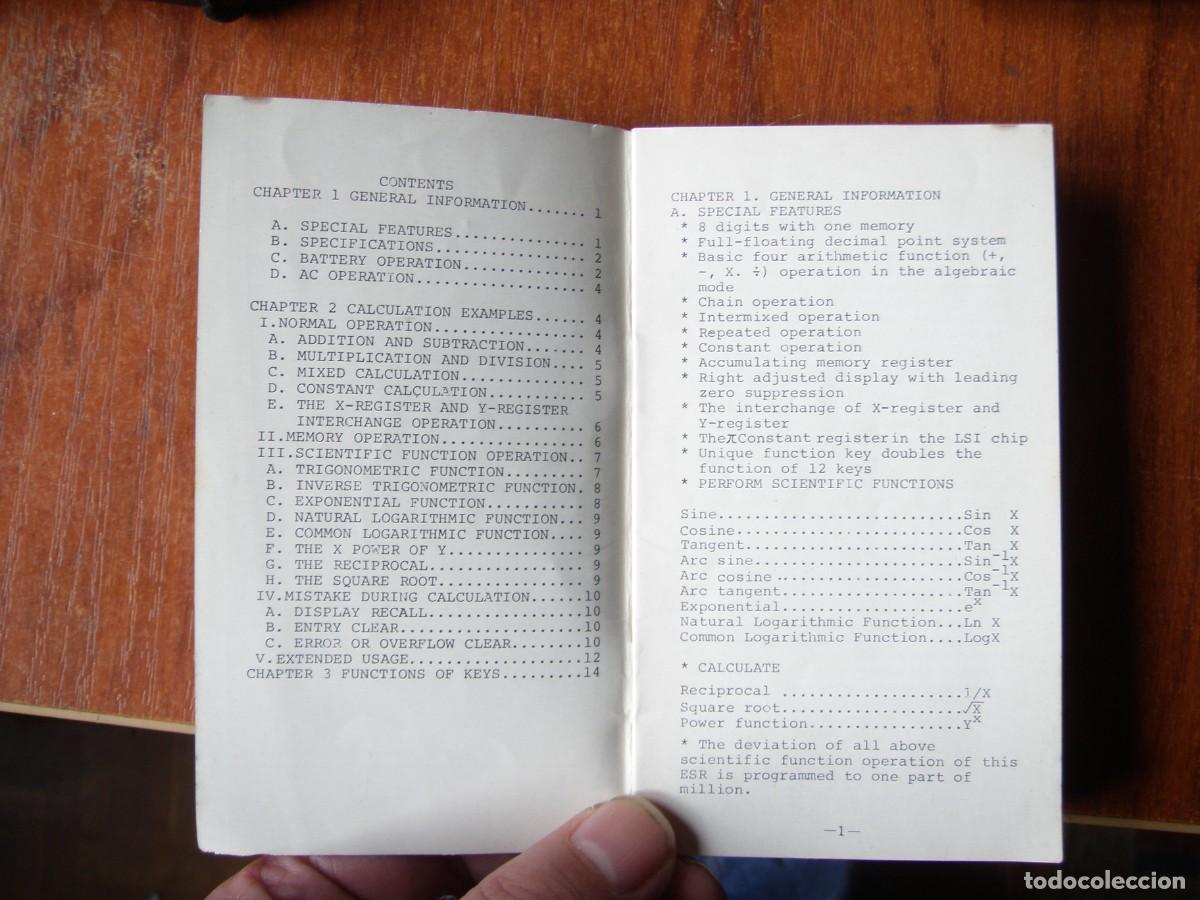 CONTENTS
CHAPTER 1 GENERAL INFORMATION....... 1
A. SPECIAL FEATURES............... 1
B. SPECIFICATIONS................. 2
C. BATTERY OPERATION.............. 2
D. AC OPERATION................... 4
CHAPTER 2 CALCULATION EXAMPLES...... 4
I.NORMAL OPERATION................ 4
A. ADDITION AND SUBTRACTION....... 4
B. MULTIPLICATION AND DIVISION.... 5
C. MIXED CALCULATION.............. 5
D. CONSTANT CALCULATION........... 5
E. THE X-REGISTER AND Y-REGISTER
INTERCHANGE OPERATION.......... 6
II.MEMORY OPERATION............... 6
III.SCIENTIFIC FUNCTION OPERATION.. 7
A. TRIGONOMETRIC FUNCTION......... 7
B. INVERSE TRIGONOMETRIC FUNCTION. 8
C. EXPONENTIAL FUNCTION........... 8
D. NATURAL LOGARITHMIC FUNCTION... 9
E. COMMON LOGARITHMIC FUNCTION.... 9
F. THE X POWER OF Y............... 9
G. THE RECIPROCAL................. 9
H. THE SQUARE ROOT................ 9
IV.MISTAKE DURING CALCULATION......10
A. DISPLAY RECALL.................10
B. ENTRY CLEAR....................10
C. ERROR OR OVERFLOW CLEAR........10
V.EXTENDED USAGE...................12
CHAPTER 3 FUNCTIONS OF KEYS.........14
CHAPTER 1. GENERAL INFORMATION
A. SPECIAL FEATURES
* 8 digits with one memory
* Full-floating decimal point system
* Basic four arithmetic function (+,
-, X. ÷) operation in the algebraic
mode
* Chain operation
* Intermixed operation
* Repeated operation
* Constant operation
* Accumulating memory register
* Right adjusted display with leading
zero suppression
* The interchange of X-register and
Y-register
* The π Constant register in the LSI chip
* Unique function key doubles the
function of 12 keys
* PERFORM SCIENTIFIC FUNCTIONS
Sine...........................Sin X
Cosine.........................Cos X
Tangent........................Tan X
Arc sine.......................Sin⁻¹X
Arc cosine.....................Cos⁻¹X
Arc tangent....................Tan⁻¹X
Exponential....................eˣ
Natural Logarithmic Function...Ln X
Common Logarithmic Function....LogX
* CALCULATE
Reciprocal ....................1/X
Square root....................√X
Power function.................Yˣ
* The deviation of all above
scientific function operation of this
ESR is programmed to one part of
million.
—1—
todocoleccion